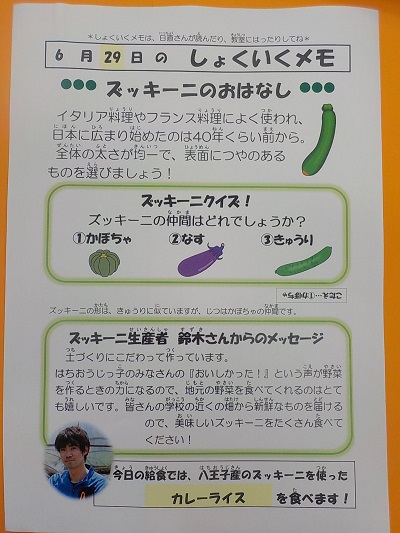 ＊しょくいくメモは、日直さんが読んだり、教室にはったりしてね＊
6月29日の しょくいくメモ
ズッキーニのおはなし
イタリア料理やフランス料理によく使われ、
日本に広まり始めたのは40年くらい前から。
全体の太さが均一で、表面につやのある
ものを選びましょう！
ズッキーニクイズ！
ズッキーニの仲間はどれでしょうか？
①かぼちゃ ②なす ③きゅうり
こたえ…①かぼちゃ
ズッキーニの形は、きゅうりに似ていますが、じつはかぼちゃの仲間です。
ズッキーニ生産者 鈴木さんからのメッセージ
土づくりにこだわって作っています。
はちおうじっ子のみなさんの『おいしかった！』という声が野菜
を作るときの力になるので、地元の野菜を食べてくれるのはとて
も嬉しいです。皆さんの学校の近くの畑から新鮮なものを届ける
ので、美味しいズッキーニをたくさん食べて
ください！
今日の給食では、八王子産のズッキーニを使った
カレーライス を食べます！